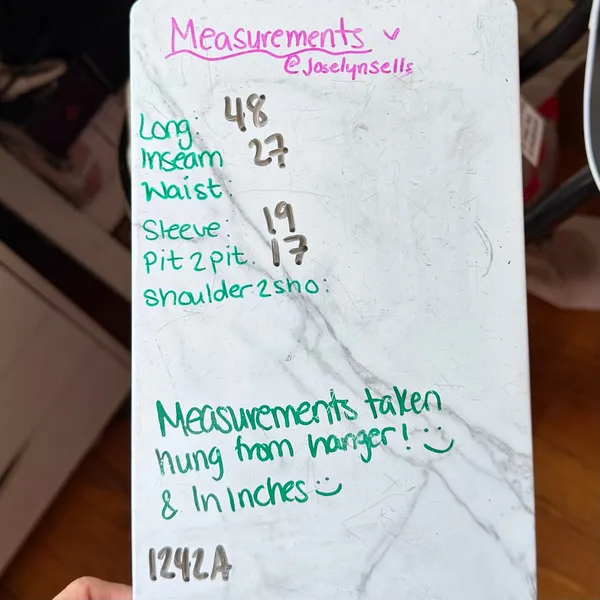 Measurements
@Joselynsells
Long: 48
Inseam 27
Waist:
Sleeve: 19
Pit 2 pit: 17
Shoulder2sho:
Measurements taken
hung from hanger! :)
& In Inches :)
1242A